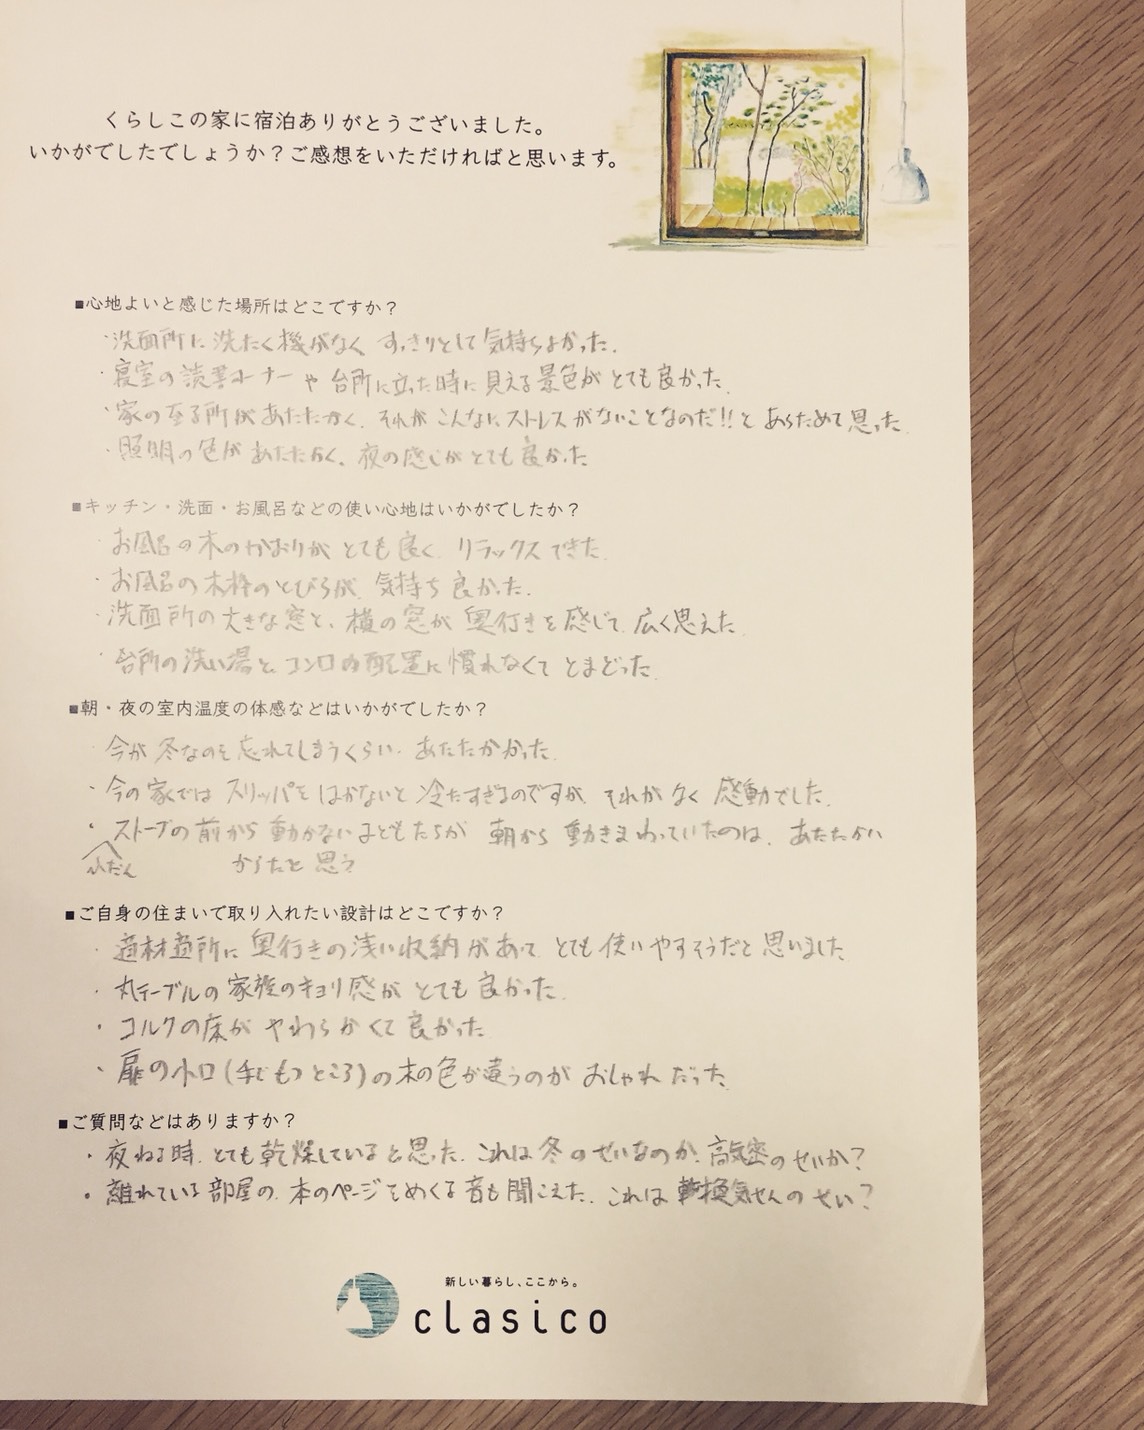 くらしこの家に宿泊ありがとうございました。
いかがでしたでしょうか？ご感想をいただければと思います。
■心地よいと感じた場所はどこですか？
・洗面所に洗たく機がなくすっきりとして気持ちよかった。
・寝室の読書コーナーや台所に立った時に見える景色がとても良かった。
・家の至る所があたたかく、それがこんなにストレスがないことなのだ!!とあらためて思った。
・照明の色があたたかく、夜の感じがとても良かった
■キッチン・洗面・お風呂などの使い心地はいかがでしたか？
・お風呂の木のかおりがとても良く、リラックスできた。
・お風呂の木枠のとびらが、気持ち良かった。
・洗面所の大きな窓と、横の窓が奥行きを感じて、広く思えた。
・台所の洗い場と、コンロの配置に慣れなくてとまどった。
■朝・夜の室内温度の体感などはいかがでしたか？
・今が冬なのを忘れてしまうくらい、あたたかかった。
・今の家ではスリッパをはかないと冷たすぎるのですが、それがなく感動でした。
・ストーブの前から動かない子どもたちが朝から動きまわっていたのは、あたたかい
ふだん からだと思う
■ご自身の住まいで取り入れたい設計はどこですか？
・適材適所に奥行きの浅い収納があって、とても使いやすそうだと思いました
・丸テーブルの家族のキョリ感がとても良かった。
・コルクの床がやわらかくて良かった。
・扉の小口(手でもつところ)の木の色が違うのがおしゃれだった。
■ご質問などはありますか？
・夜ねる時、とても乾燥していると思った。これは冬のせいなのか、高気密のせいか？
・離れている部屋の、本のページをめくる音も聞こえた。これは換気せんのせい？
新しい暮らし、ここから。
clasico